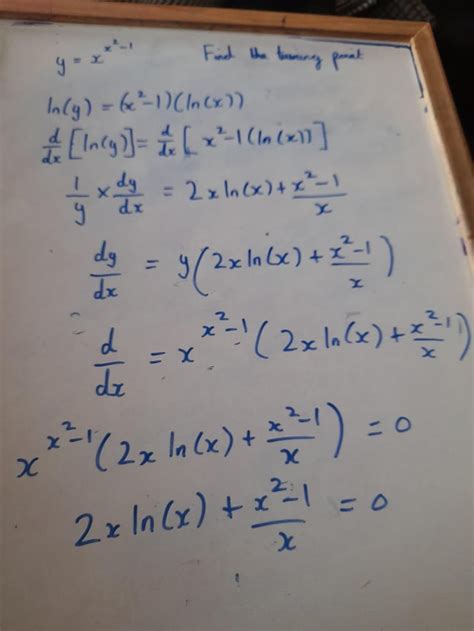 y = x^(x²-1) Find the turning point
ln(y) = (x²-1)(ln(x))
d/dx [ln(y)] = d/dx [x²-1(ln(x))]
1/y × dy/dx = 2x ln(x) + (x²-1)/x
dy/dx = y(2x ln(x) + (x²-1)/x)
d/dx = x^(x²-1) (2x ln(x) + (x²-1)/x)
x^(x²-1) (2x ln(x) + (x²-1)/x) = 0
2x ln(x) + (x²-1)/x = 0